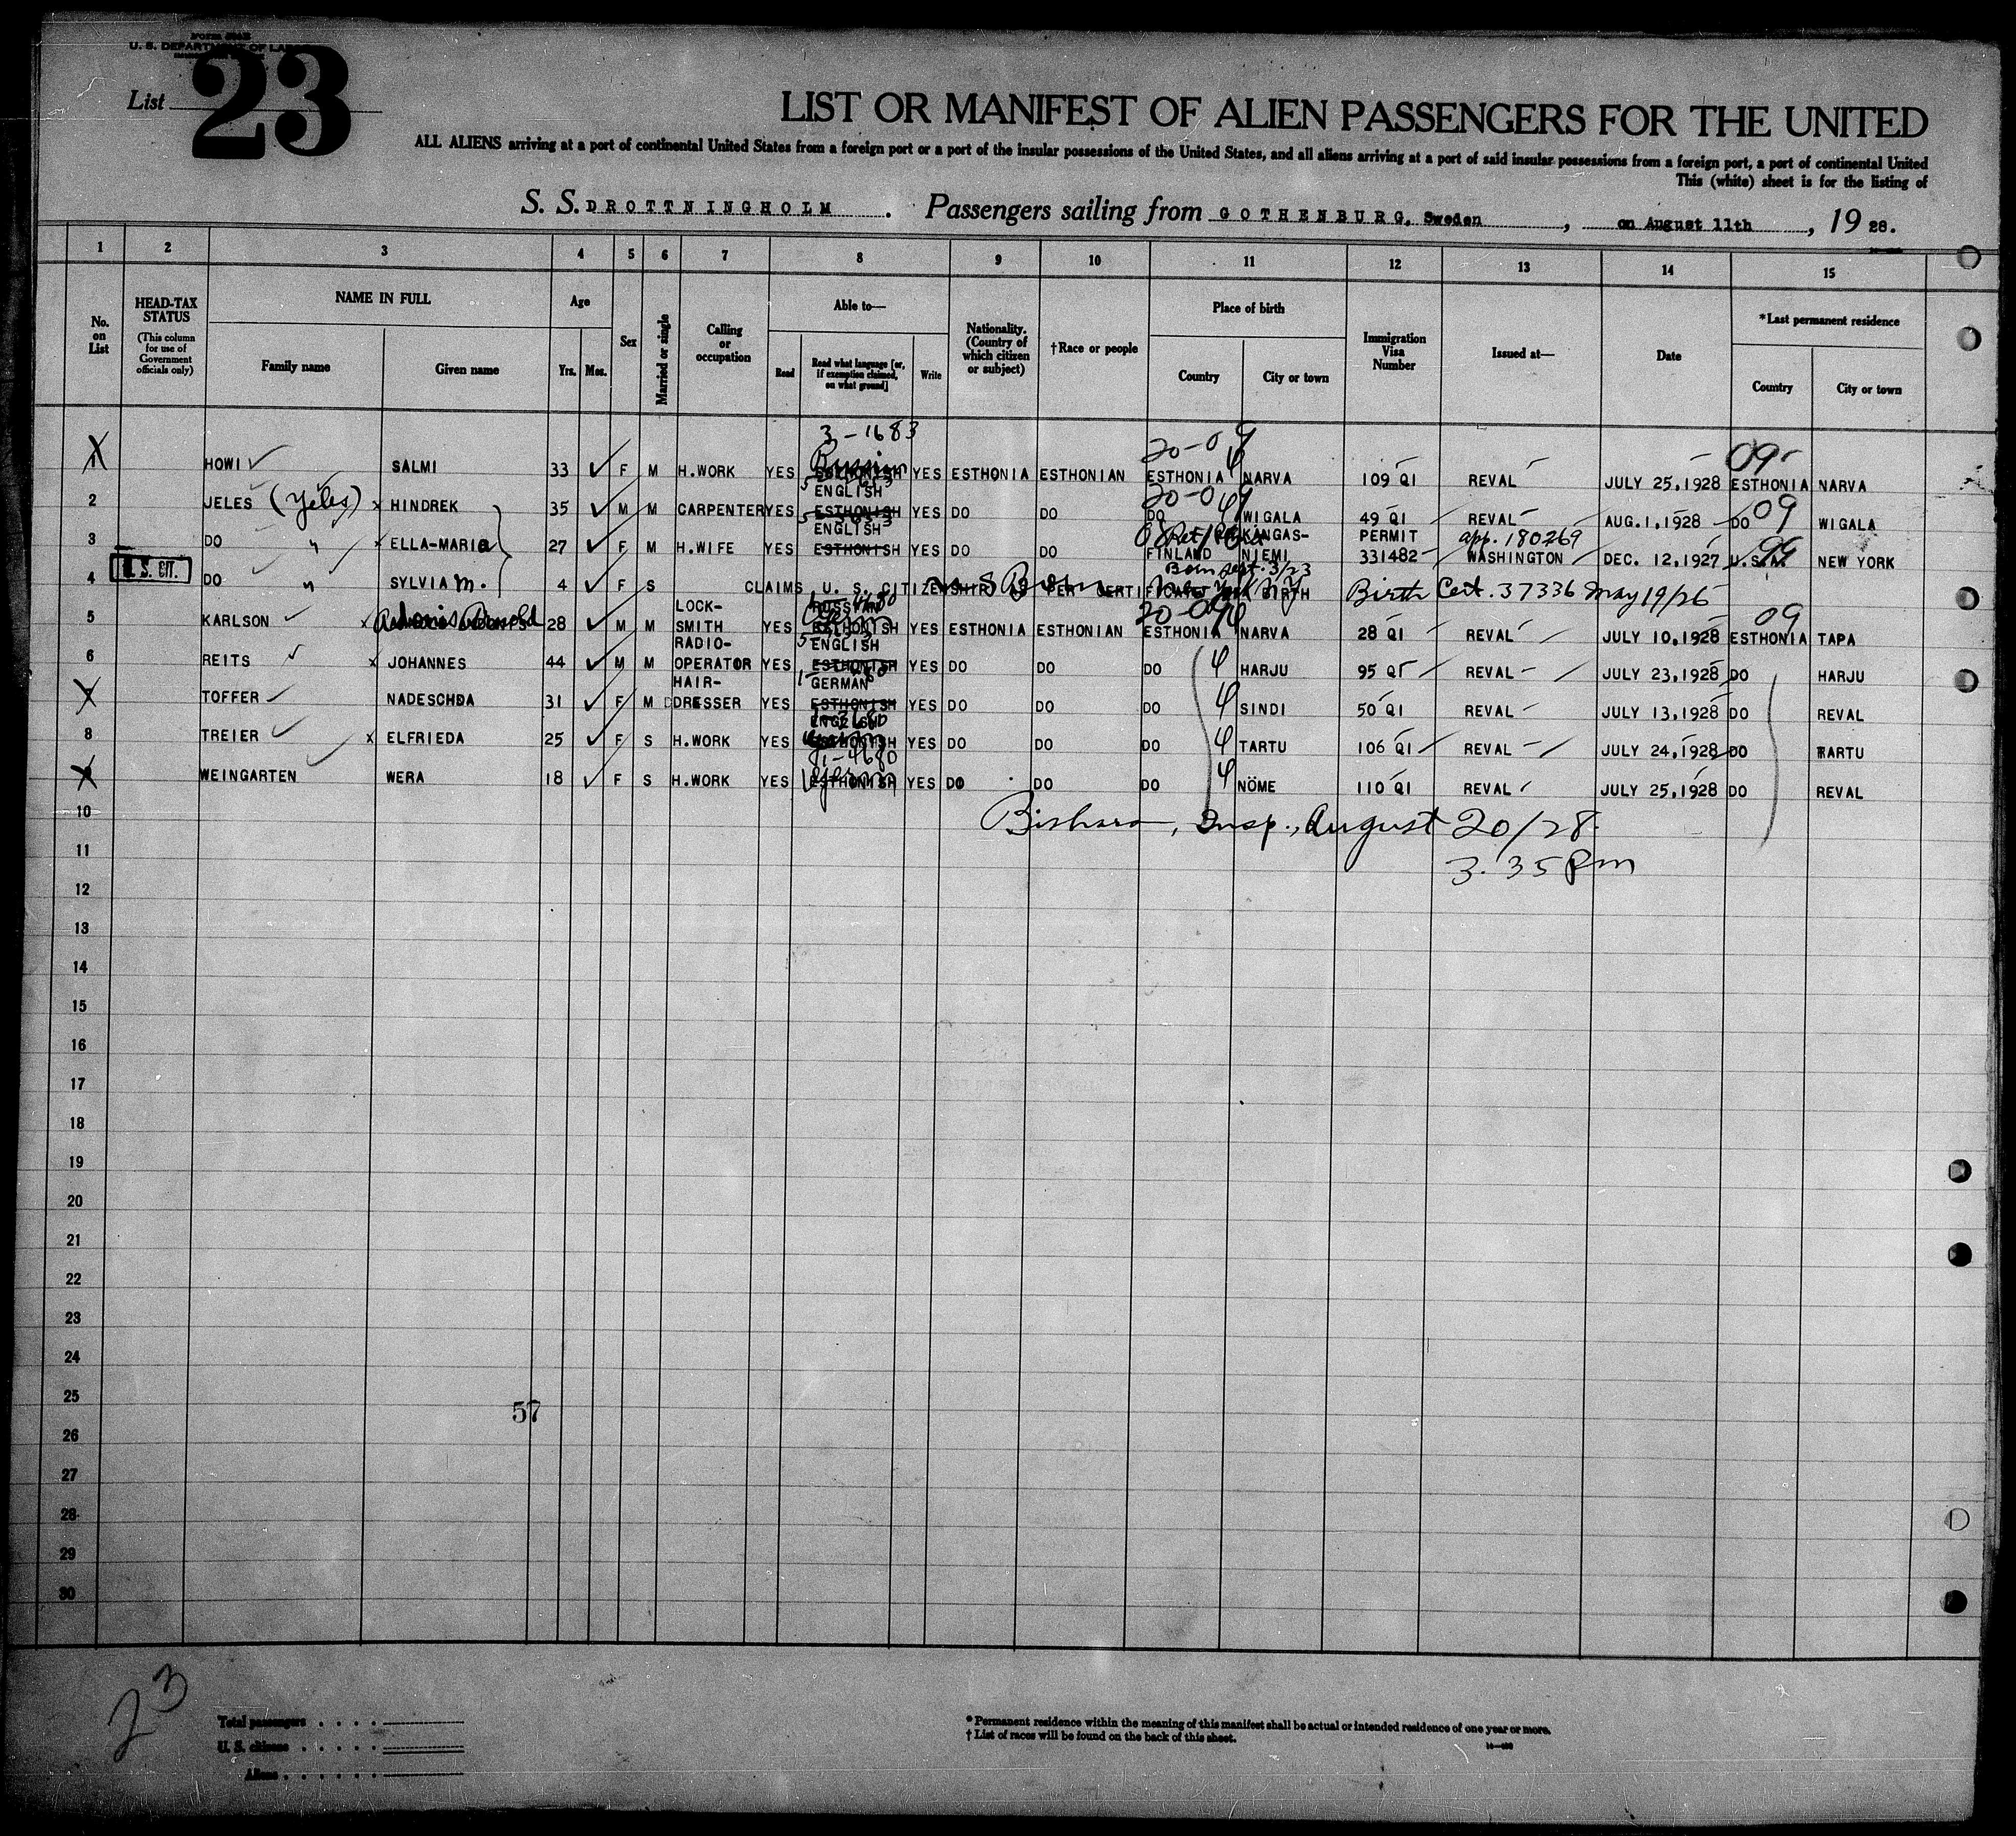 U. S. DEPARTMENT OF LABOR
List 23
LIST OR MANIFEST OF ALIEN PASSENGERS FOR THE UNITED
ALL ALIENS arriving at a port of continental United States from a foreign port or a port of the insular possessions of the United States, and all aliens arriving at a port of said insular possessions from a foreign port, a port of continental United
This (white) sheet is for the listing of
S. S. DROTTNINGHOLM . Passengers sailing from GOTHENBURG, Sweden , on August 11th , 19 28.
1 2 3 4 5 6 7 8 9 10 11 12 13 14 15
No. on List
HEAD-TAX STATUS
(This column for use of Government officials only)
NAME IN FULL
Family name
Given name
Age
Yrs. Mos.
Sex
Married or single
Calling or occupation
Able to—
Read
Read what language [or, if exemption claimed, on what ground]
Write
Nationality. (Country of which citizen or subject)
†Race or people
Place of birth
Country
City or town
Immigration Visa Number
Issued at—
Date
*Last permanent residence
Country
City or town
3-1683
20-09
09
1 HOWI SALMI 33 F M H.WORK YES Russian ESTHONISH YES ESTHONIA ESTHONIAN ESTHONIA NARVA 109 QI REVAL JULY 25,1928 ESTHONIA NARVA
ENGLISH 20-09
2 JELES (Yeles) x HINDREK 35 M M CARPENTER YES ESTHONISH YES DO DO DO WIGALA 49 QI REVAL AUG.1,1928 DO 09 WIGALA
ENGLISH KANGAS- PERMIT app. 180269
3 DO " x ELLA-MARIA 27 F M H.WIFE YES ESTHONISH YES DO DO FINLAND NIEMI 331482 WASHINGTON DEC. 12,1927 U.S.A. 99 NEW YORK
U. S. CIT. Born Sept. 3/23
4 DO " SYLVIA M. 4 F S CLAIMS U. S. CITIZENSHIP AS PER CERTIFICATE OF BIRTH U S Born New York NY Birth Cert. 37336 May 19/26
LOCK- RUSSIAN 20-09 09
5 KARLSON x Adonis Arnold 28 M M SMITH YES ESTHONISH YES ESTHONIA ESTHONIAN ESTHONIA NARVA 28 QI REVAL JULY 10,1928 ESTHONIA TAPA
RADIO- ENGLISH
6 REITS x JOHANNES 44 M M OPERATOR YES ESTHONISH YES DO DO DO HARJU 95 QI REVAL JULY 23,1928 DO HARJU
HAIR- GERMAN
7 TOFFER NADESCHDA 31 F M DRESSER YES ESTHONISH YES DO DO DO SINDI 50 QI REVAL JULY 13,1928 DO REVAL
ENGLISH
8 TREIER x ELFRIEDA 25 F S H.WORK YES German ESTHONISH YES DO DO DO TARTU 106 QI REVAL JULY 24,1928 DO TARTU
1-4680
9 WEINGARTEN WERA 18 F S H.WORK YES German ESTHONISH YES DO DO DO NÖME 110 QI REVAL JULY 25,1928 DO REVAL
10 Bishara, Insp., August 20/28
11 3.35 Pm
12
13
14
15
16
17
18
19
20
21
22
23
24
25
57
26
27
28
29
30
23
Total passengers
U. S. citizens
Aliens
* Permanent residence within the meaning of this manifest shall be actual or intended residence of one year or more.
† List of races will be found on the back of this sheet.